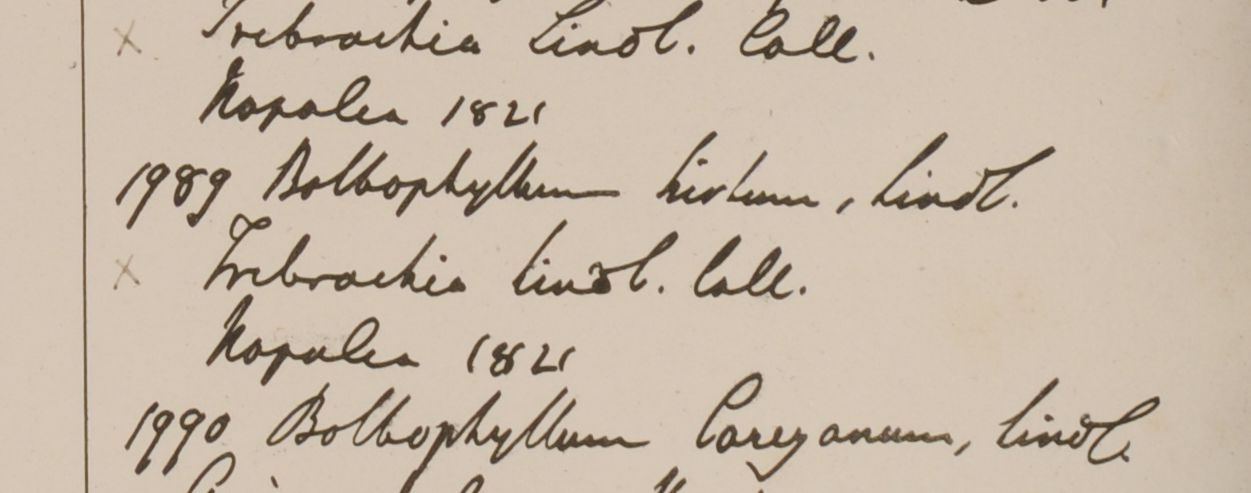 × Trebrachia Lindl. Coll.
Napalea 1821
1989 Bolbophyllum hirtum, Lindl.
× Trebrachia Lindl. Coll.
Napalea 1821
1990 Bolbophyllum Careyanum, Lindl.